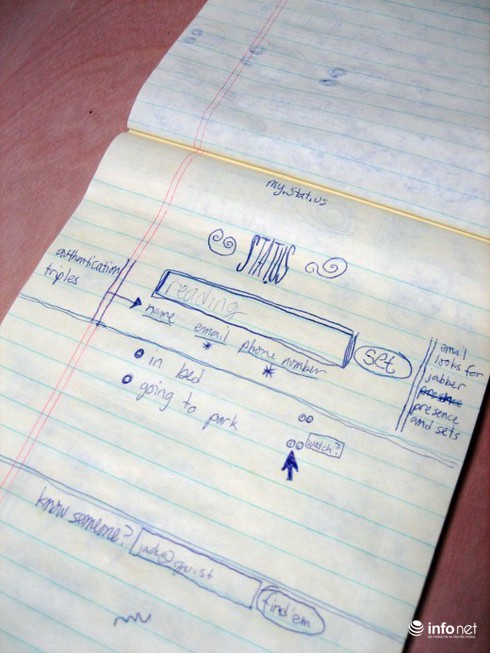 my.stat.us
STATUS
authentication
triples
reading
set
name email phone number
in bed
going to park
watch?
email
looks for
jabber
presence
and sets
know someone?
find 'em
infonet